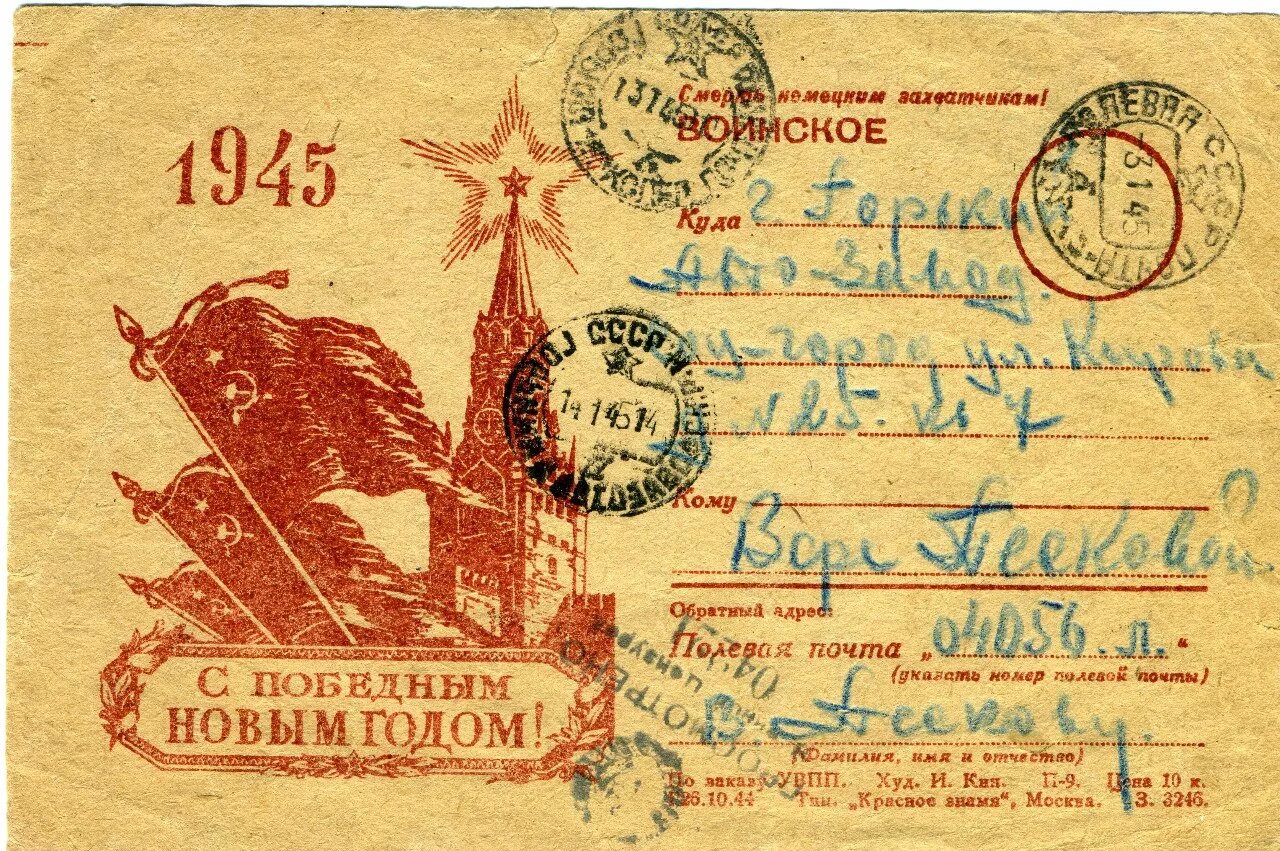 1945
С ПОБЕДНЫМ
НОВЫМ ГОДОМ!
Смерть немецким захватчикам!
ВОИНСКОЕ
Куда г Горький
Авто-Завод.
ул. Кирова
№ 25. кв 7
Кому
Вере Песковой
Обратный адрес:
Полевая почта „04056. л.“
(указать номер полевой почты)
В. Пескову.
(Фамилия, имя и отчество)
По заказу УВПП. Худ. И. Кин. П-9. Цена 10 к.
26.10.44 Тип. „Красное знамя“, Москва. З. 3246.
ПОЛЕВАЯ ПОЧТА
СССР
-3 1 45
13 1 45
СССР
14 1 45 14